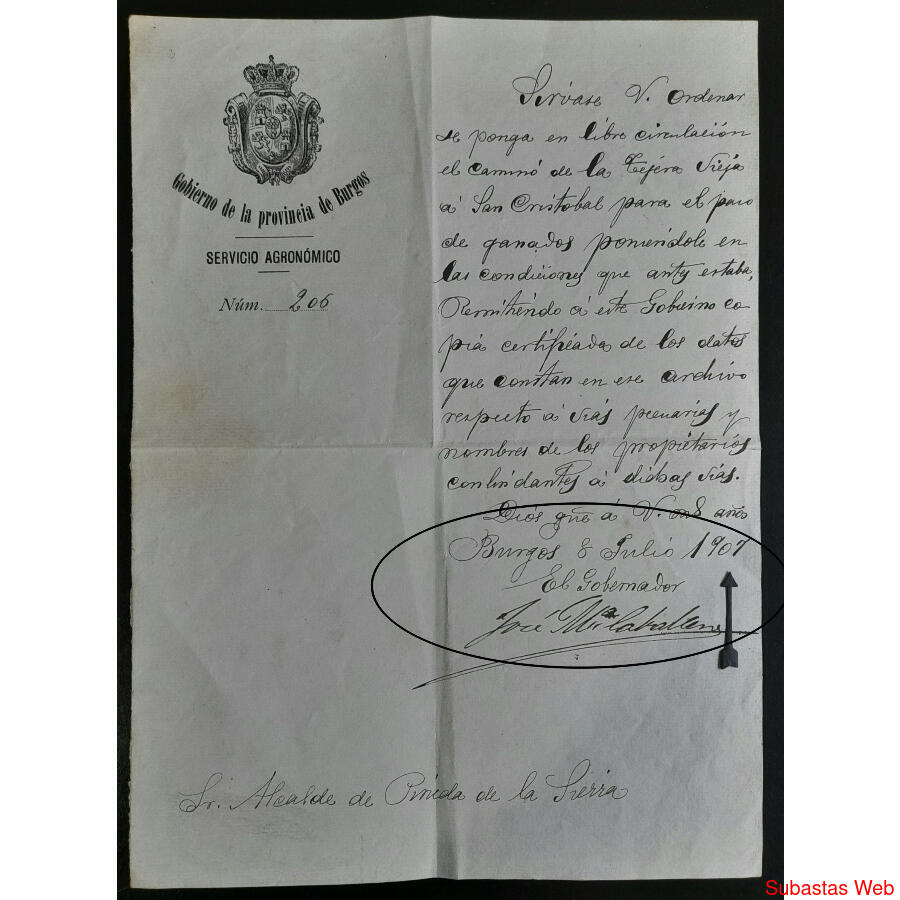 Gobierno de la provincia de Burgos
SERVICIO AGRONÓMICO
Núm. 206
Sirvase V. ordenar
se ponga en libre circulación
el camino de la Tejera vieja
á San Cristobal para el paso
de ganados poniendole en
las condiciones que antes estaba,
Remitiendo á este Gobierno co
pia certificada de los datos
que constan en ese archivo
respecto á vias pecuarias y
nombres de los propietarios
conlindantes á dichas vias.
Dios gũe á V. ms años
Burgos 8 Julio 1907
El Gobernador
José Mª Caballero
Sr. Alcalde de Pineda de la Sierra
Subastas Web